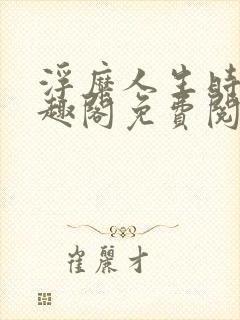 浮靡人生時
趣閣免費閱
崔麗才